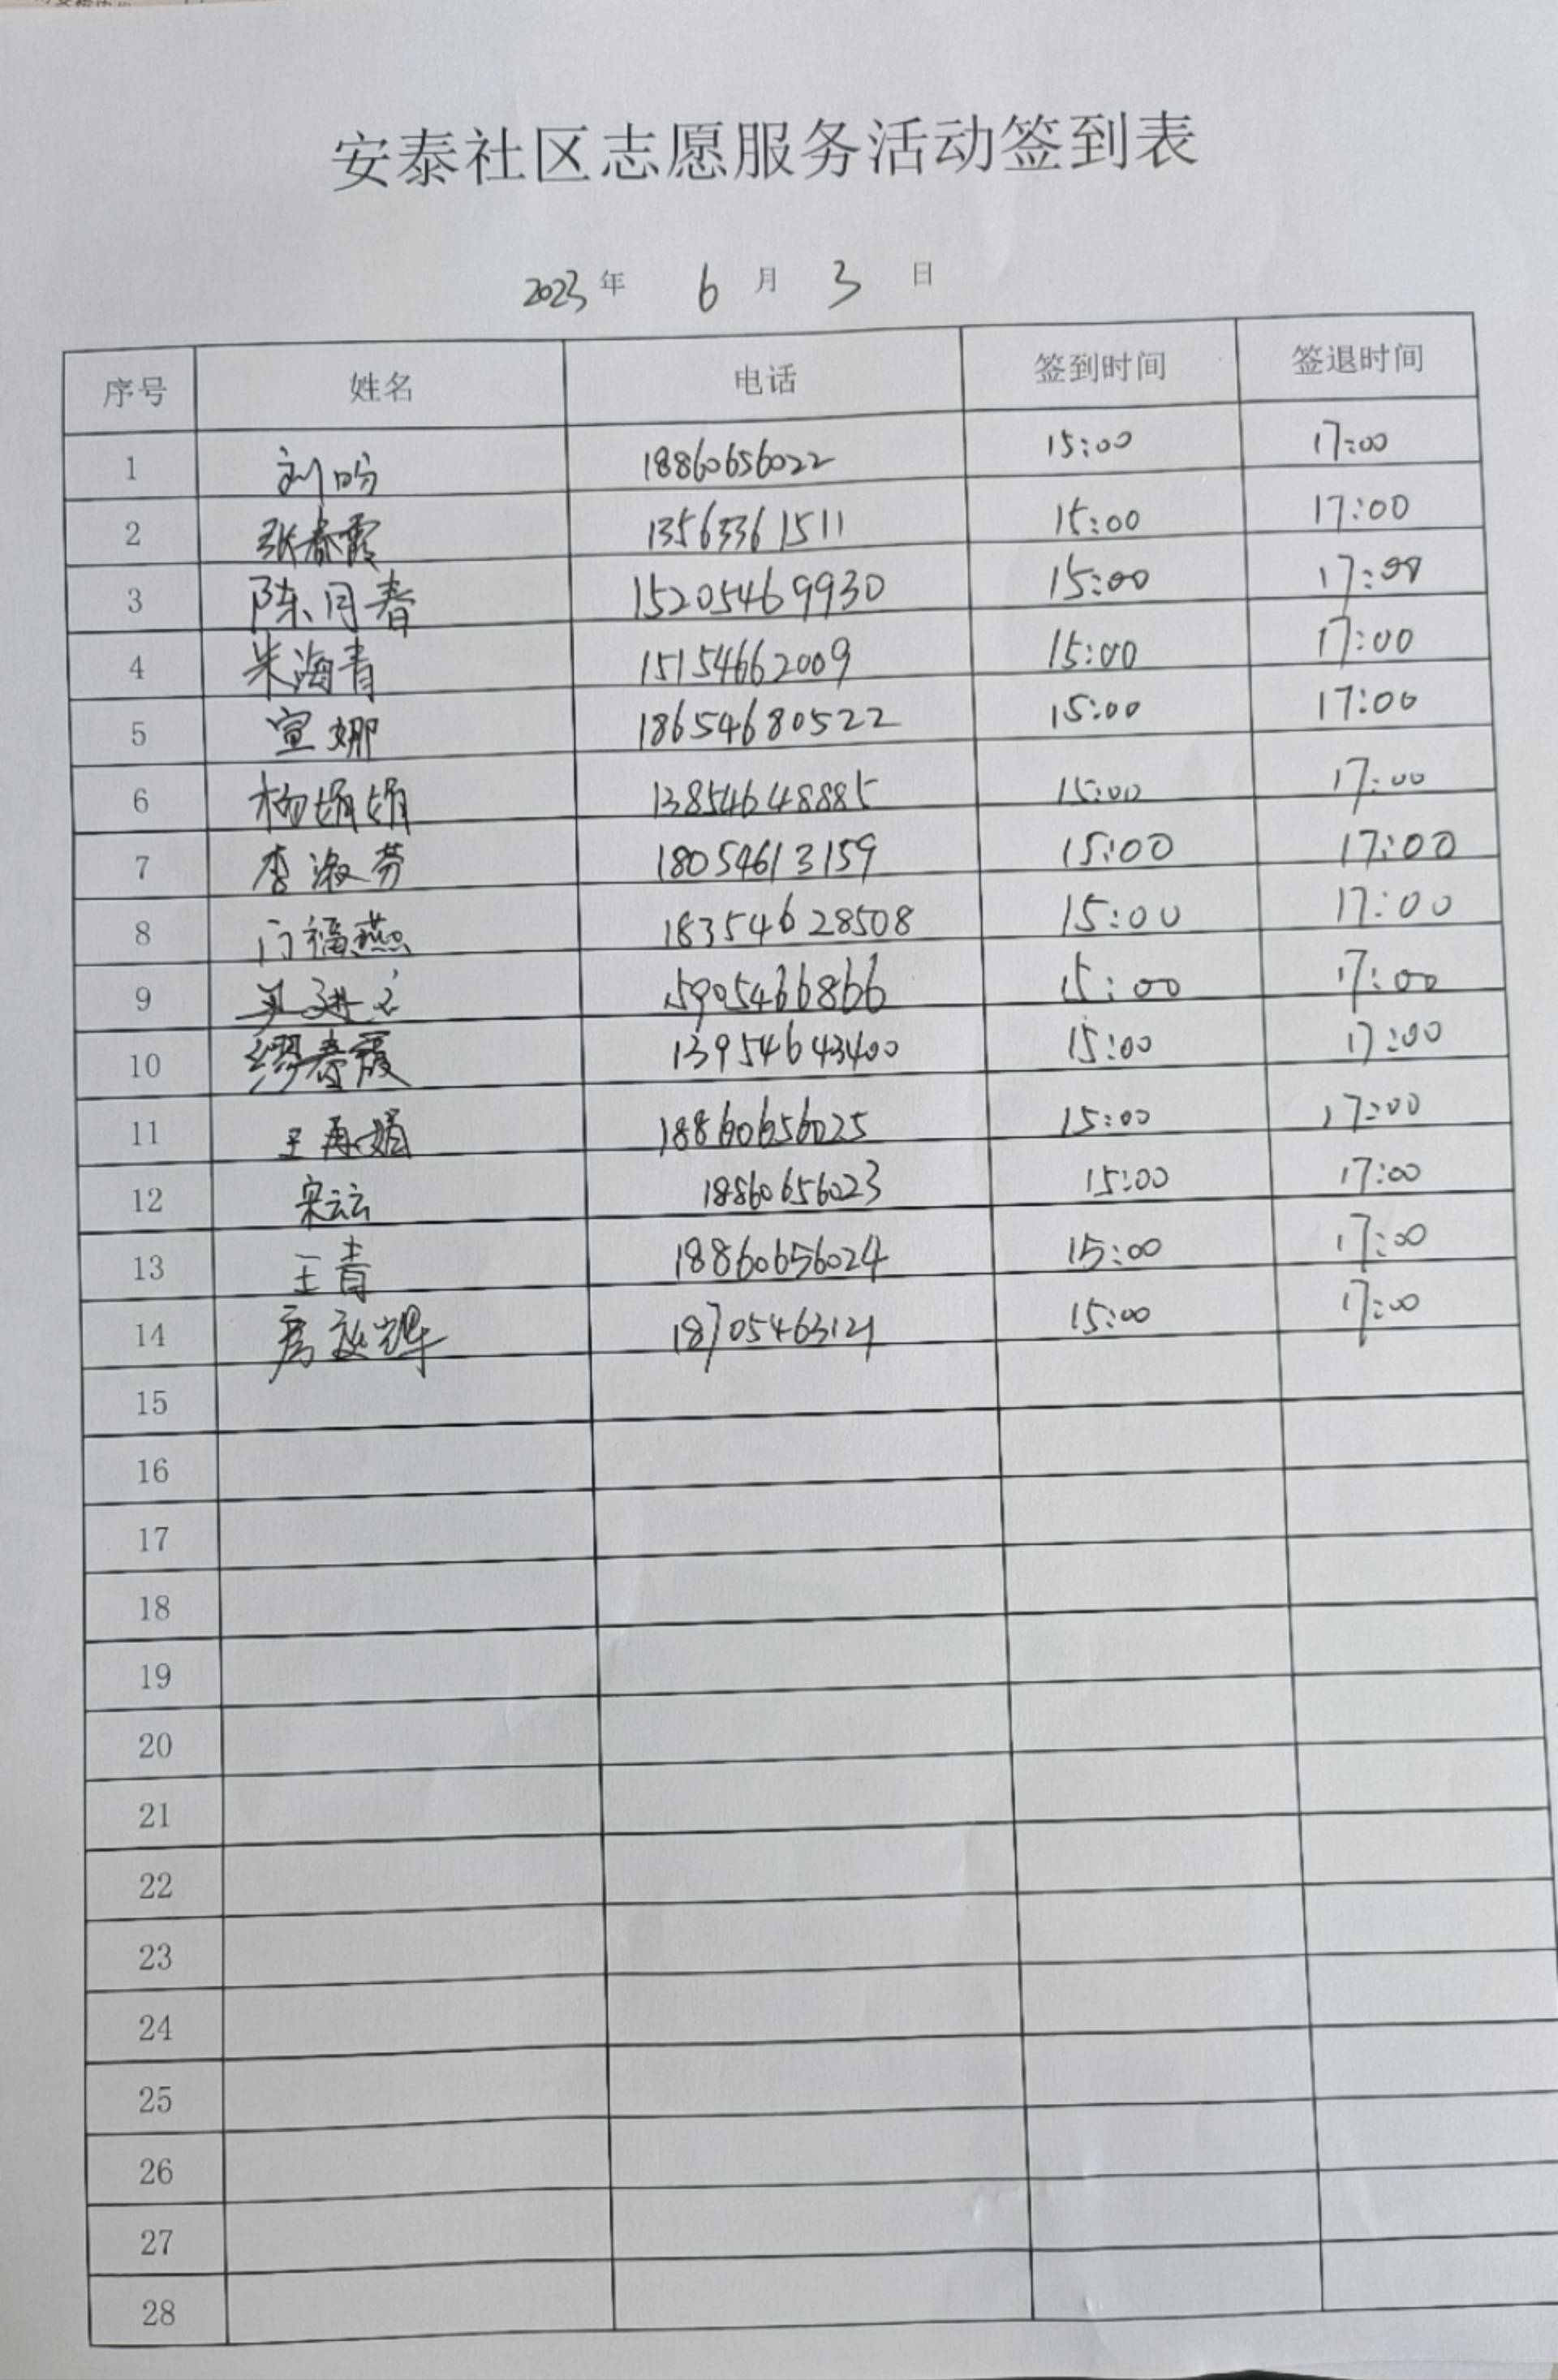 安泰社区志愿服务活动签到表
2023年 6月 3日
序号 姓名 电话 签到时间 签退时间
1 刘吟 18860656022 15:00 17:00
2 张春霞 13563361511 15:00 17:00
3 陈月春 15205469930 15:00 17:00
4 朱海青 15154662009 15:00 17:00
5 宣娜 18654680522 15:00 17:00
6 杨娟娟 13854648885 15:00 17:00
7 李淑芳 18054613159 15:00 17:00
8 门福燕 18354628508 15:00 17:00
9 15905466866 15:00 17:00
10 缪春霞 13954643400 15:00 17:00
11 王再娟 18860656025 15:00 17:00
12 宋云云 18860656023 15:00 17:00
13 王青 18860656024 15:00 17:00
14 18705463121 15:00 17:00
15
16
17
18
19
20
21
22
23
24
25
26
27
28